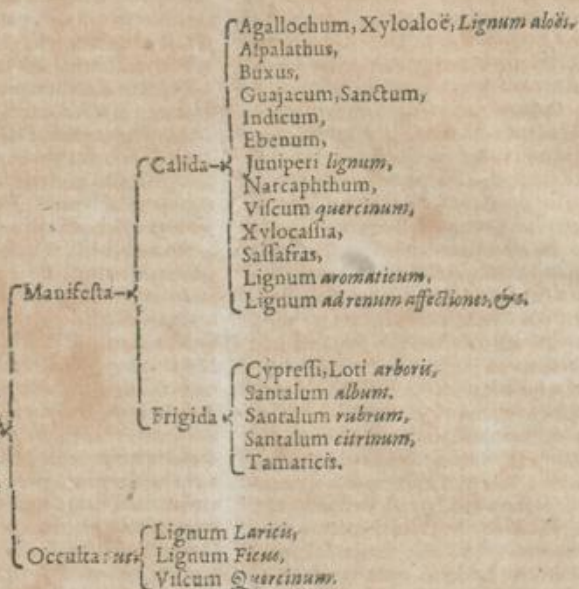 Agallochum, Xyloaloë, Lignum aloës,
Aſpalathus,
Buxus,
Guajacum, Sanctum,
Indicum,
Ebenum,
Calida
Juniperi lignum,
Narcaphthum,
Viſcum quercinum,
Xylocaſſia,
Saſſafras,
Lignum aromaticum,
Manifeſta
Lignum ad renum affectiones, &c.
Cypreſſi, Loti arboris,
Santalum album.
Frigida
Santalum rubrum,
Santalum citrinum,
Tamaricis.
Lignum Laricis,
Occulta: ut
Lignum Ficus,
Viſcum Quercinum.